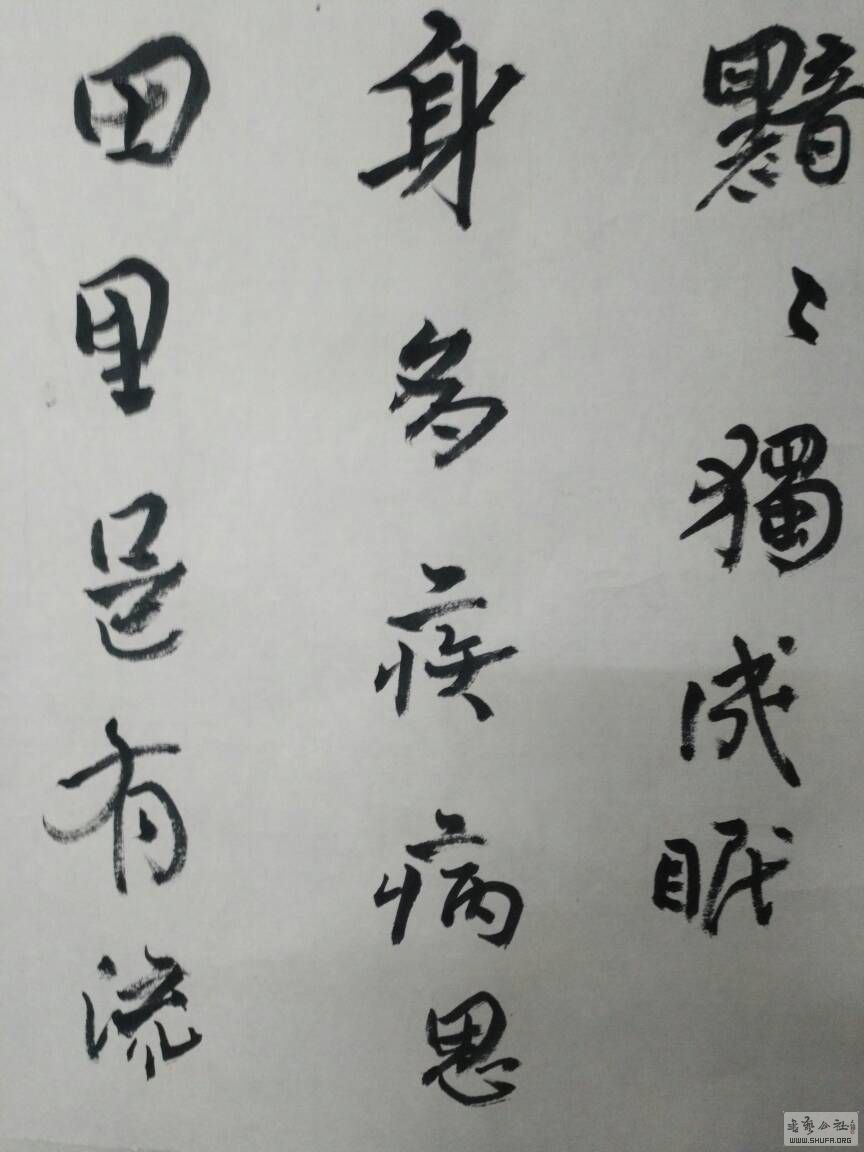 黯〻獨成眠
身多疾病思
田里邑有流
书艺公社
WWW.SHUFA.ORG